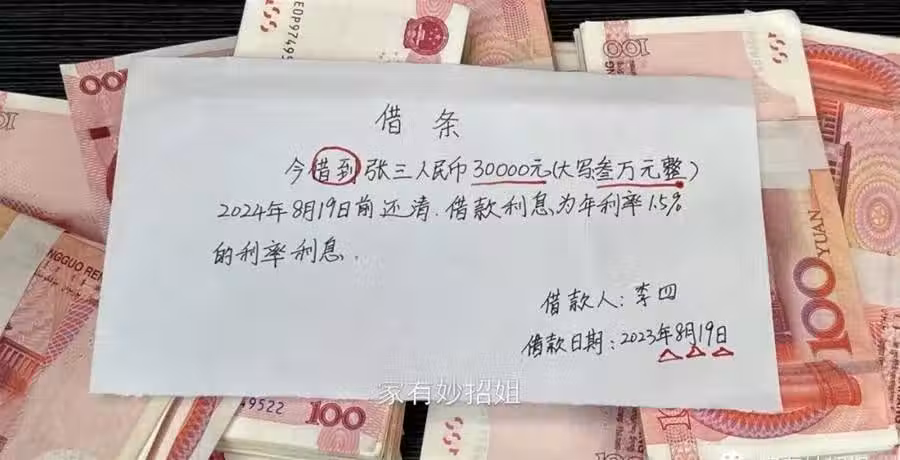 借条
今借到张三人民币30000元(大写叁万元整)
2024年8月19日前还清.借款利息为年利率1.5%
的利率利息.
借款人:李四
借款日期:2023年8月19日
家有妙招姐
100
100
100
100
YUAN
49522